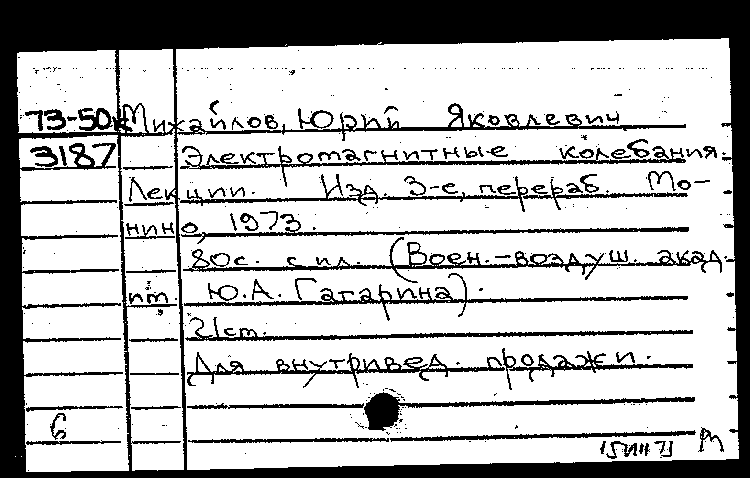 73-50к Михайлов, Юрий Яковлевич
3187 Электромагнитные колебания.
Лекции. Изд. 3-е, перераб. Мо-
нино, 1973.
80с. с ил. (Воен.-воздуш. акад.
им. Ю.А. Гагарина).
21см.
Для внутривед. продажи.
6